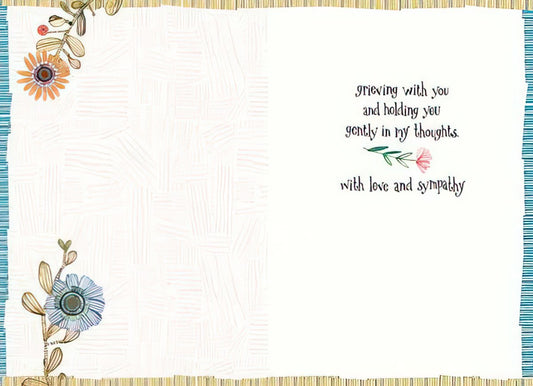 grieving with you
and holding you
gently in my thoughts.
with love and sympathy